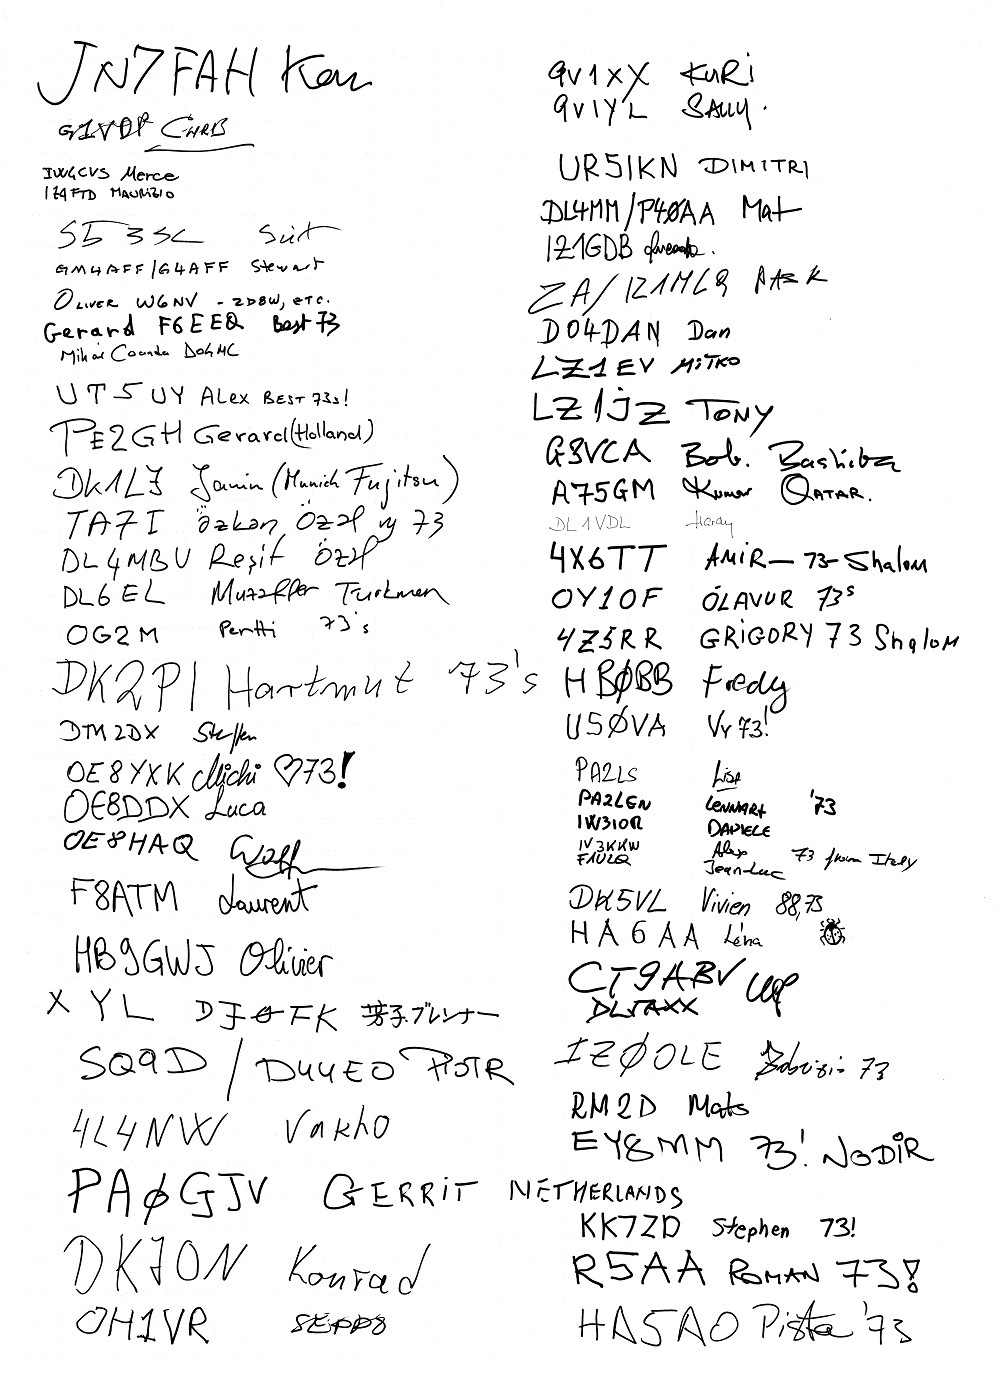 JN7FAH Ken
G1VDP CHRIS
IW4CVS Merce
IZ4FTD MAURIZIO
S53SL
GM4AFF/G4AFF Stewart
OLIVER W6NV - ZD8W, ETC.
Gerard F6EEQ Best 73
Mihai Coanda DO4MC
UT5UY ALEX BEST 73s!
PE2GH Gerard (Holland)
DK1LJ Janin (Munich Fujitsu)
TA7I özkan Özal vy 73
DL4MBU Reşit Özal
DL6EL Muzaffer Türkmen
OG2M Pertti 73's
DK2PI Hartmut 73's
DM2DX Steffen
OE8YXK Michi ♡73!
OE8DDX Luca
OE8HAQ
F8ATM Laurent
HB9GWJ Olivier
XYL DJØFK 芳子ブレンナー
SQ9D / D44EO PIOTR
4L4NW Vakho
PAØGJV GERRIT NETHERLANDS
DK7ON Konrad
OH1VR SEPPO
9V1XX KURi
9V1YL SALLY.
UR5IKN DIMITRI
DL4MM/P40AA Mat
IZ1GDB
ZA/IZ1MLQ
DO4DAN Dan
LZ1EV MiTKO
LZ1JZ TONY
G3VCA Bob.
A75GM Kumar QATAR.
DL1VDL Hardy
4X6TT AMIR - 73 - Shalom
OY1OF ÓLAVUR 73s
4Z5RR GRiGORY 73 Shalom
HBØBB Fredy
U5ØVA Vy 73!
PA2LS Lisa
PA2LEN LENNART '73
IW3IOR DANIELE
IV3KKW Alex 73 from Italy
F1ULQ Jean-Luc
DK5VL Vivien 88,73
HA6AA Léna
CT9ABV
DL5AXX
IZØOLE Fabrizio 73
RM2D Mats
EY8MM 73! NODiR
KK7ZD Stephen 73!
R5AA ROMAN 73!
HA5AO Pista '73